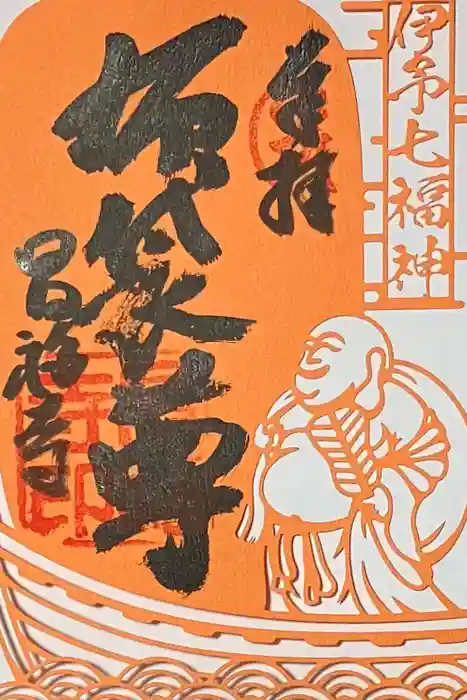 伊奈七福神
奉拝
布袋尊
昌福寺